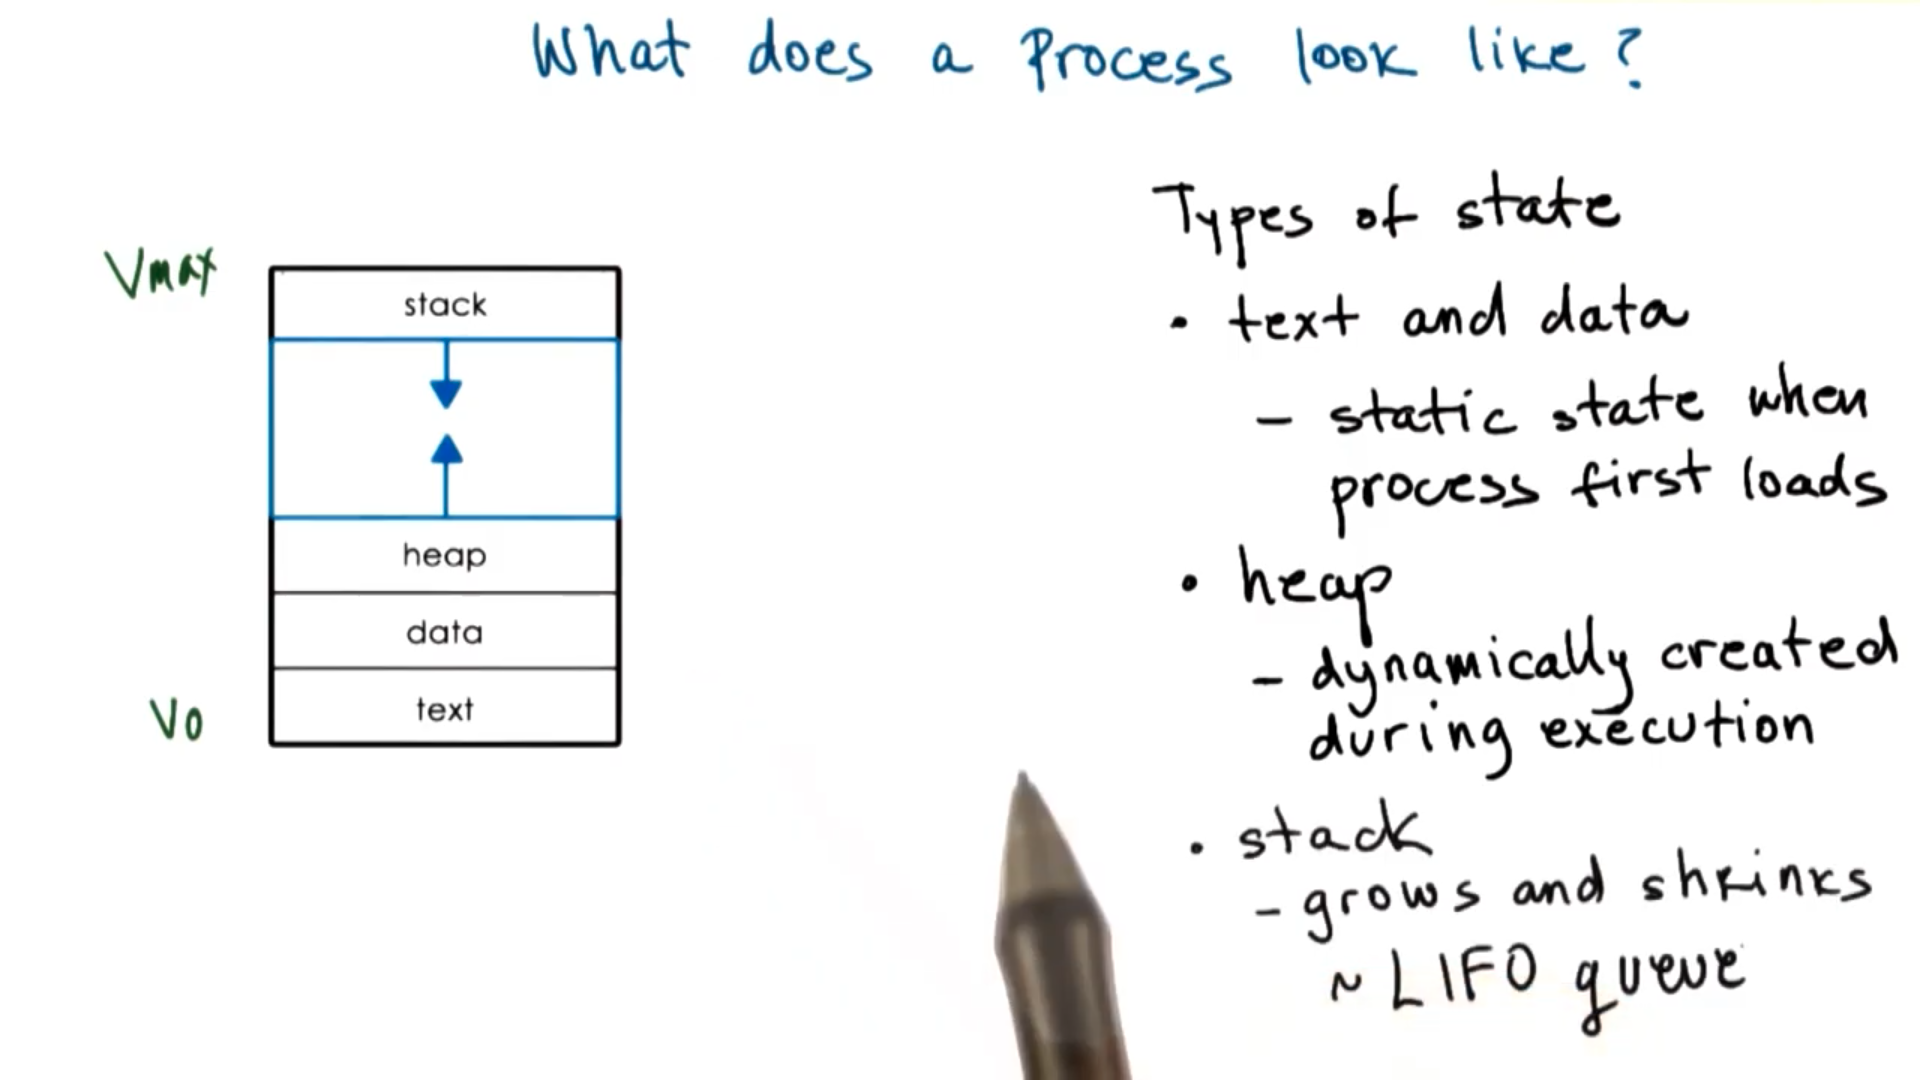 What does a Process look like?
Vmax
stack
heap
data
text
V0
Types of state
• text and data
- static state when
process first loads
• heap
- dynamically created
during execution
• stack
- grows and shrinks
~ LIFO queue